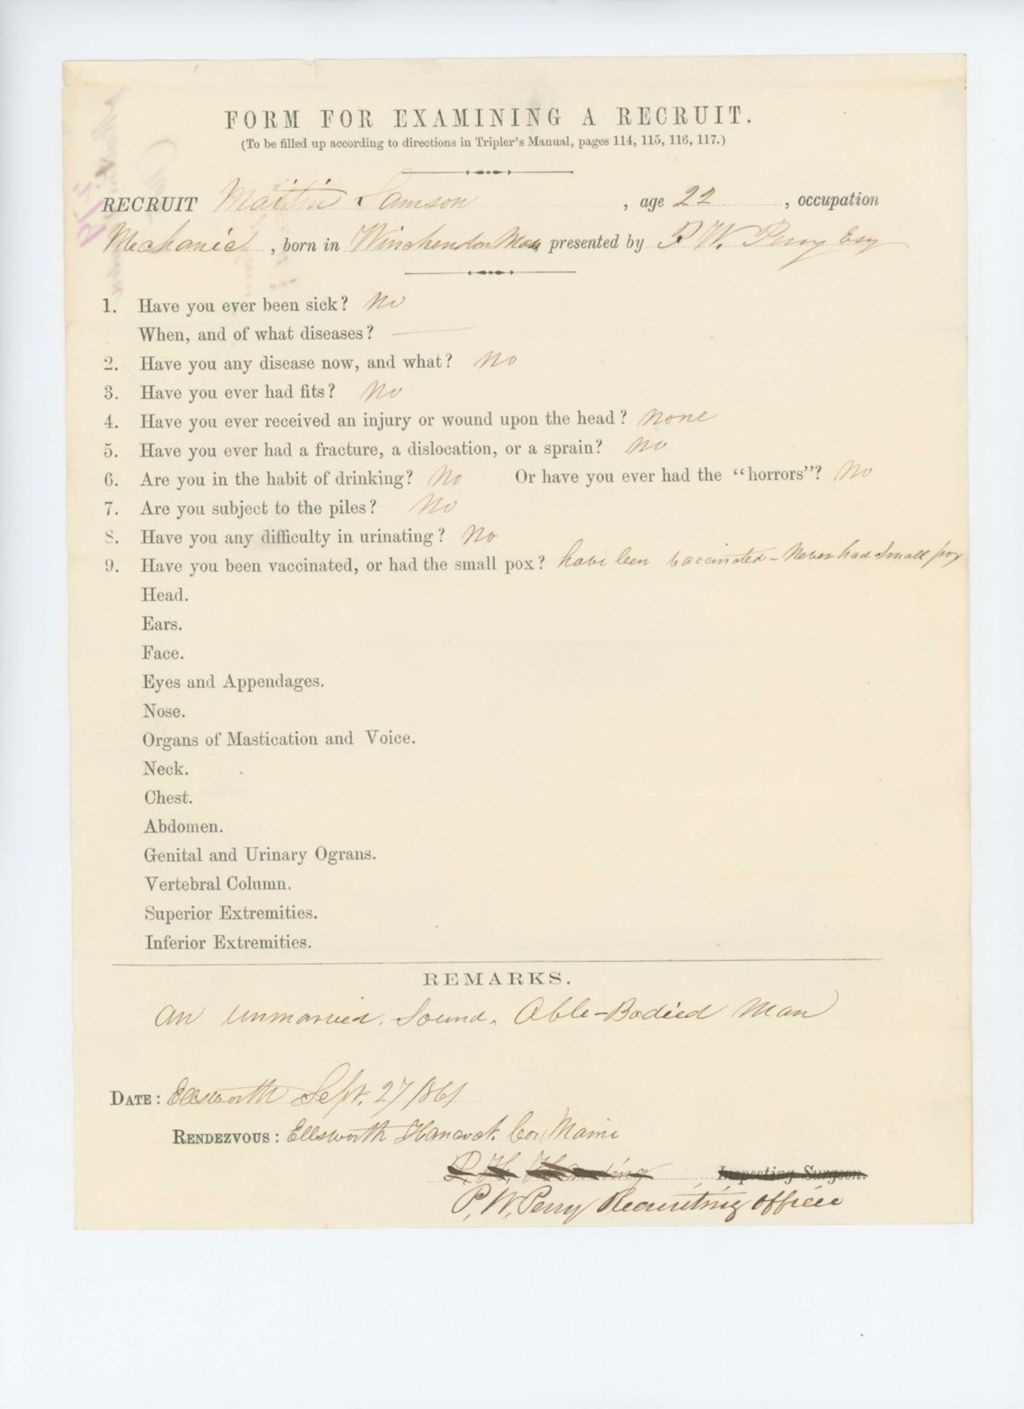 FORM FOR EXAMINING A RECRUIT.
(To be filled up according to directions in Tripler's Manual, pages 114, 115, 116, 117.)
RECRUIT Martin Samson , age 22 , occupation
Mechanic , born in Winchendon Mass presented by P. W. Perry Esq
1. Have you ever been sick? No
When, and of what diseases? —
2. Have you any disease now, and what? No
3. Have you ever had fits? No
4. Have you ever received an injury or wound upon the head? None
5. Have you ever had a fracture, a dislocation, or a sprain? No
6. Are you in the habit of drinking? No Or have you ever had the "horrors"? No
7. Are you subject to the piles? No
8. Have you any difficulty in urinating? No
9. Have you been vaccinated, or had the small pox? have been vaccinated - Never had Small pox
Head.
Ears.
Face.
Eyes and Appendages.
Nose.
Organs of Mastication and Voice.
Neck.
Chest.
Abdomen.
Genital and Urinary Ograns.
Vertebral Column.
Superior Extremities.
Inferior Extremities.
REMARKS.
An unmarried, Sound, Able-Bodied Man
DATE: Ellsworth Sept. 27 1861
RENDEZVOUS: Ellsworth Hancock Co. Maine
Inspecting Surgeon.
P. W. Perry Recruiting Officer